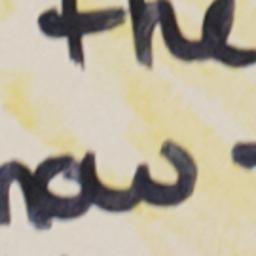 the
now.